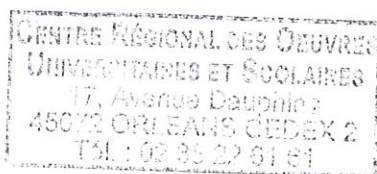 CENTRE RÉGIONAL DES OEUVRES
UNIVERSITAIRES ET SCOLAIRES
17, Avenue Dauphine
45072 ORLEANS CEDEX 2
Tél. : 02